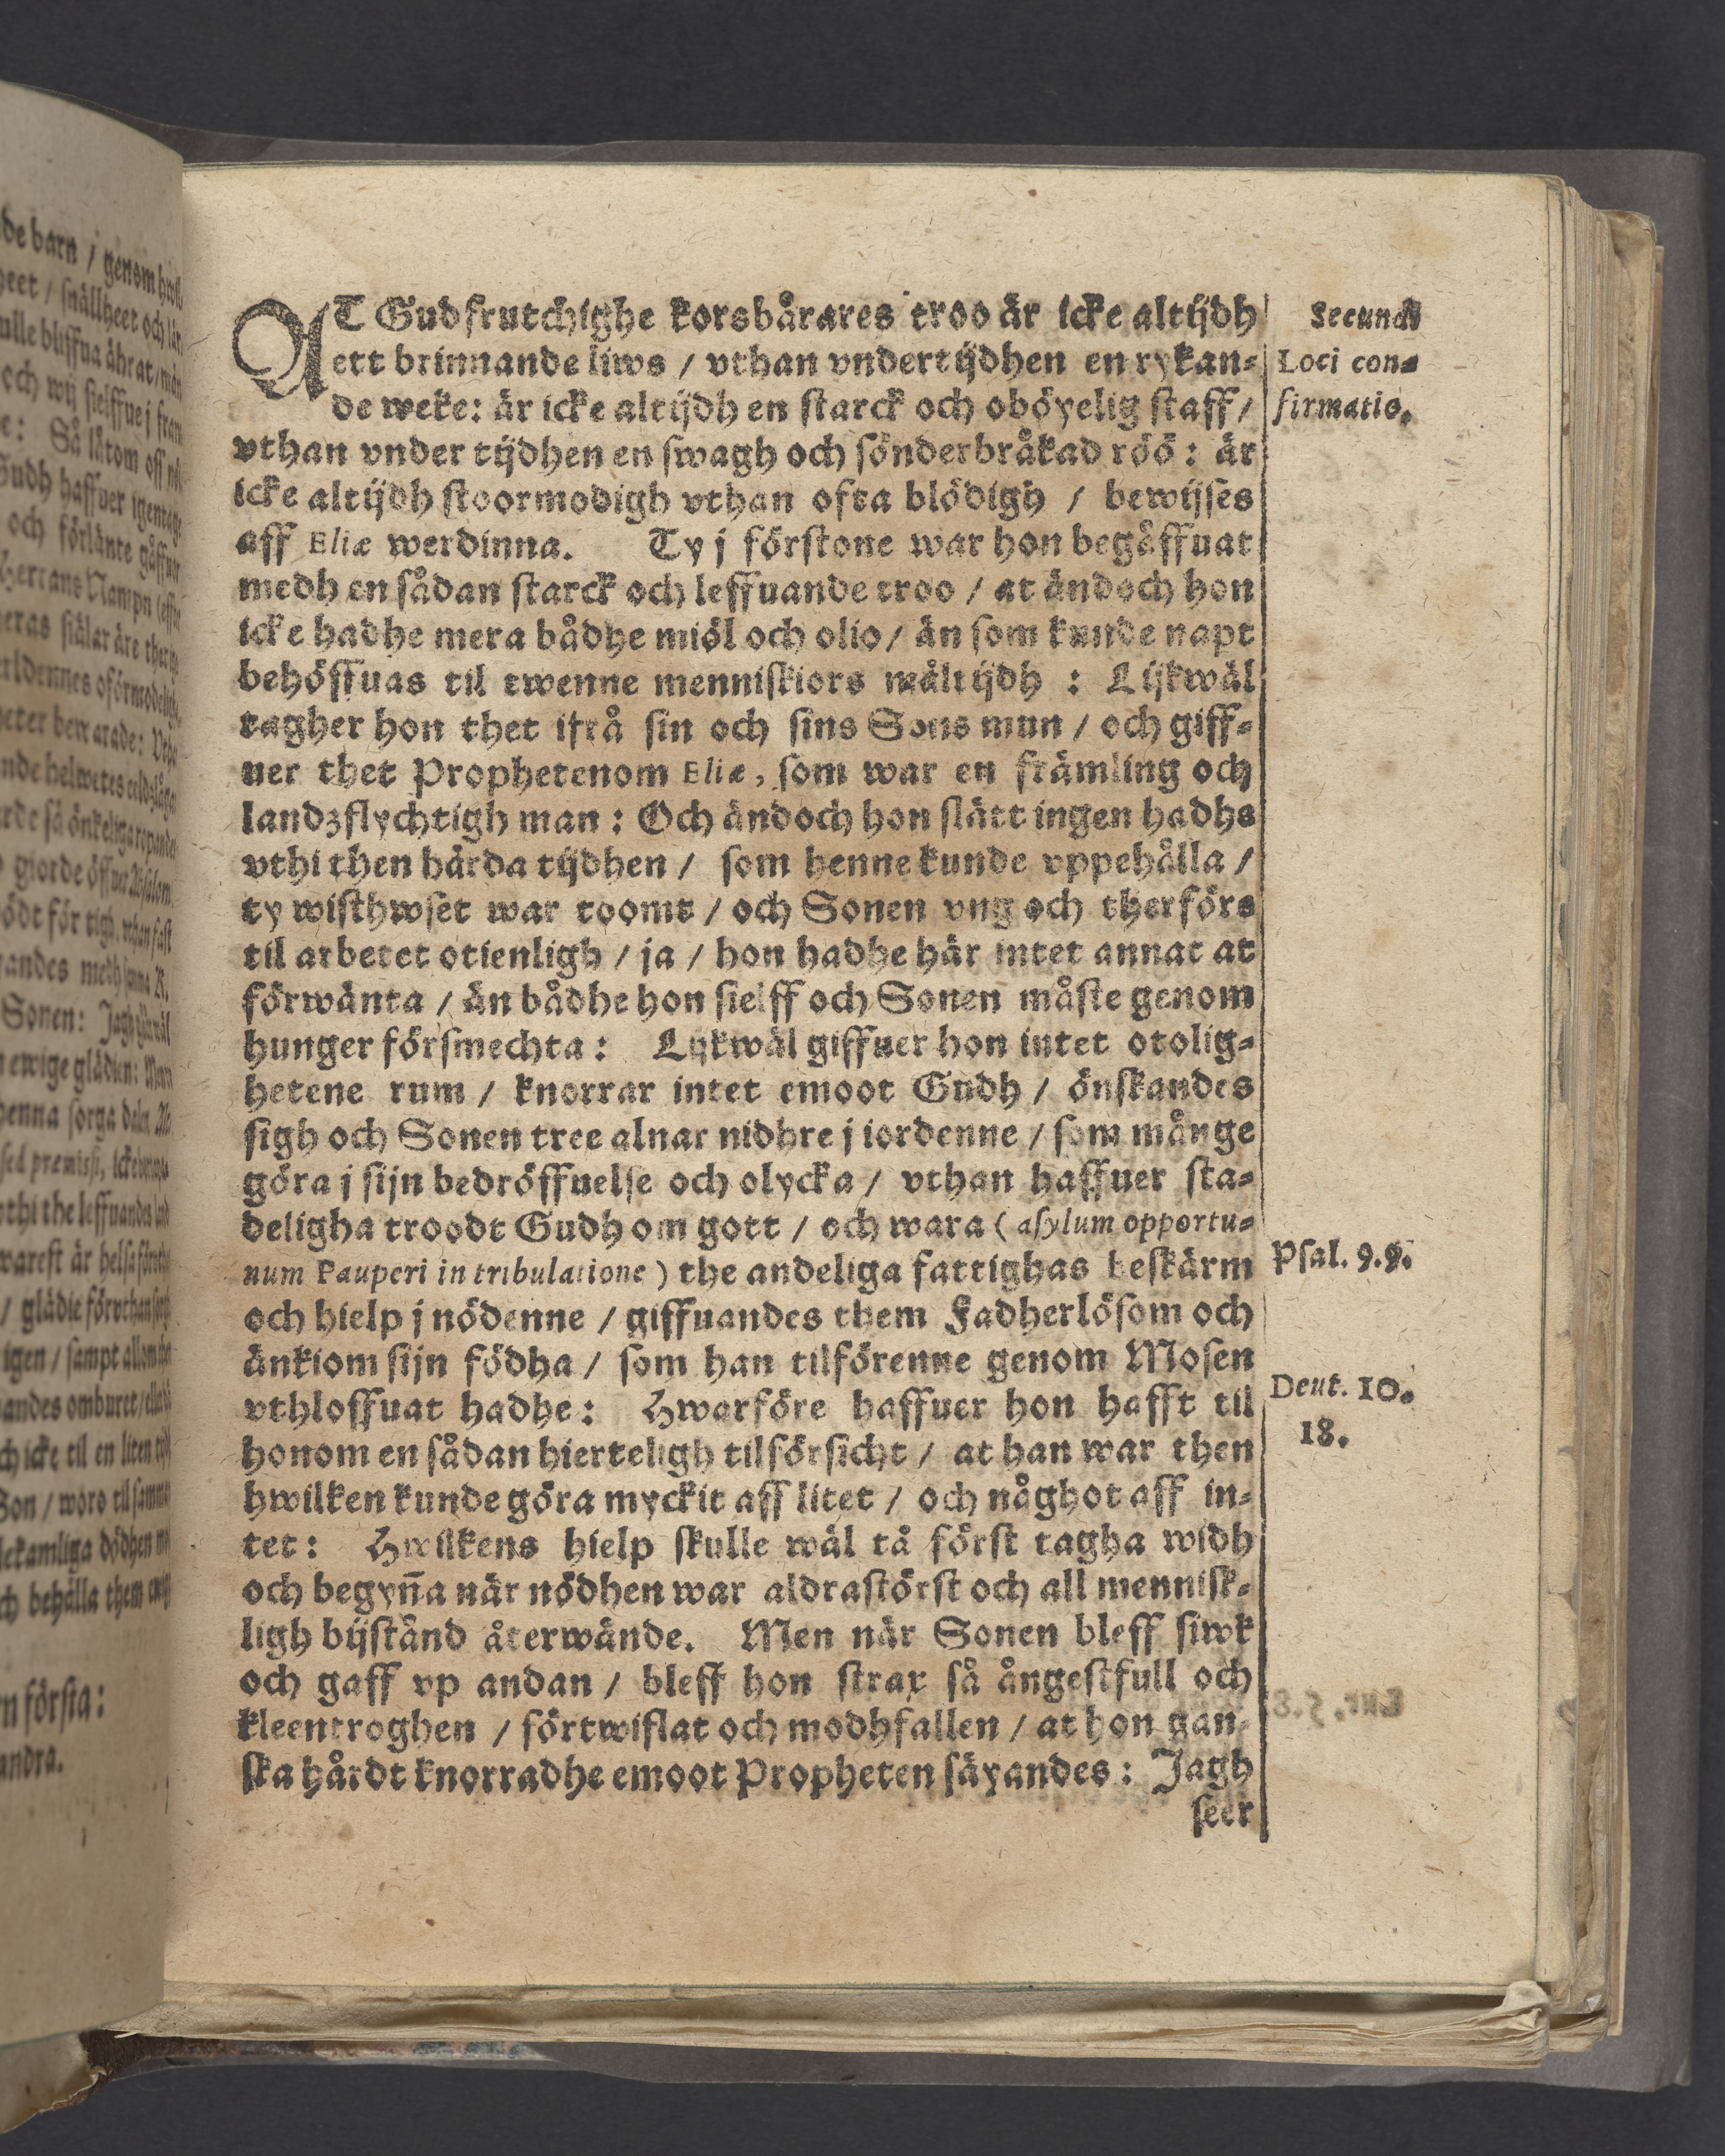 AT Gudfrutchighe korsbårares troo är icke altijdh
ett brinnande liws / vthan vndertijdhen en rykan-
de weke: är icke altijdh en starck och oböyelig staff /
vthan vnder tijdhen en swagh och sönderbråkad röö : är
icke altijdh stoormodigh vthan ofta blödigh / bewijses
aff Eliæ werdinna. Ty j förstone war hon begåffuat
medh en sådan starck och leffuande troo / at ändoch hon
icke hadhe mera bådhe miöl och olio / än som kunde napt
behöffuas til twenne menniskiors måltijdh : Lijkwäl
tagher hon thet ifrå sin och sins Sons mun / och giff-
uer thet Prophetenom Eliæ, som war en främling och
landzflychtigh man : Och ändoch hon slätt ingen hadhe
vthi then hårda tijdhen / som henne kunde vppehålla /
ty wisthwset war toomt / och Sonen vng och therföre
til arbetet otienligh / ja / hon hadhe här intet annat at
förwänta / än bådhe hon sielff och Sonen måste genom
hunger försmechta : Lijkwäl giffuer hon intet otolig-
hetene rum / knorrar intet emoot Gudh / önskandes
sigh och Sonen tree alnar nidhre j iordenne / som månge
göra j sijn bedröffuelse och olycka / vthan haffuer sta-
deligha troodt Gudh om gott / och wara ( asylum opportu-
num Pauperi in tribulatione ) the andeliga fattighas beskärm
och hielp j nödenne / giffuandes them Fadherlösom och
änkiom sijn födha / som han tilförenne genom Mosen
vthloffuat hadhe : Hwarföre haffuer hon hafft til
honom en sådan hierteligh tilförsicht / at han war then
hwilken kunde göra myckit aff litet / och någhot aff in-
tet : Hwilkens hielp skulle wäl tå först tagha widh
och begyn̄a när nödhen war aldrastörst och all mennisk-
ligh bijstånd återwände. Men när Sonen bleff siwk
och gaff vp andan / bleff hon strax så ångestfull och
kleentroghen / förtwiflat och modhfallen / at hon gan-
ska hårdt knorradhe emoot Propheten säyandes : Jagh
seer
Secundi
Loci con-
firmatio.
Psal. 9.9.
Deut. 10.
18.